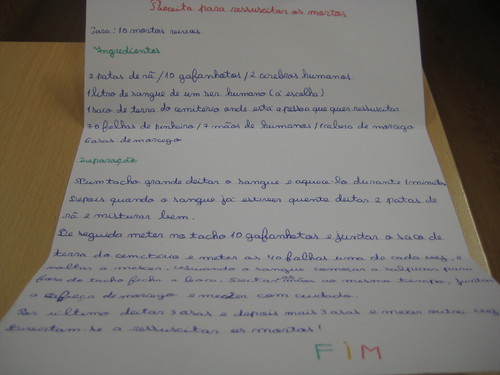 Receita para ressuscitar os mortos
Para: 10 mortos
Ingredientes
2 patas de rã / 10 gafanhotos / 2 cerebros humanos
1 litro de sangue de um ser humano (á escolha)
1 saco de terra do cemitério onde está a pessoa que quer ressuscitar
70 folhas de pinheiro / 7 mãos de humanos / 1 cabeça de morcego
6 asas de morcego
Preparação
Num tacho grande deitar o sangue e aquece-lo durante 1 minuto
Depois quando o sangue já estiver quente deitar 2 patas de
rã e misturar bem.
De seguida meter no tacho 10 gafanhotos e juntar o saco de
terra do cemitério e meter as 70 folhas uma de cada vez, e
voltar a mexer, quando o sangue começar a salpicar para
fora do tacho fecha a boca. Deitar mãos ao mesmo tempo, juntar
a cabeça de morcego e mecher com cuidado.
Por ultimo deitar 3 asas e depois mais 3 asas e mexer outra vez
Divertam-se a ressuscitar os mortos!
FIM